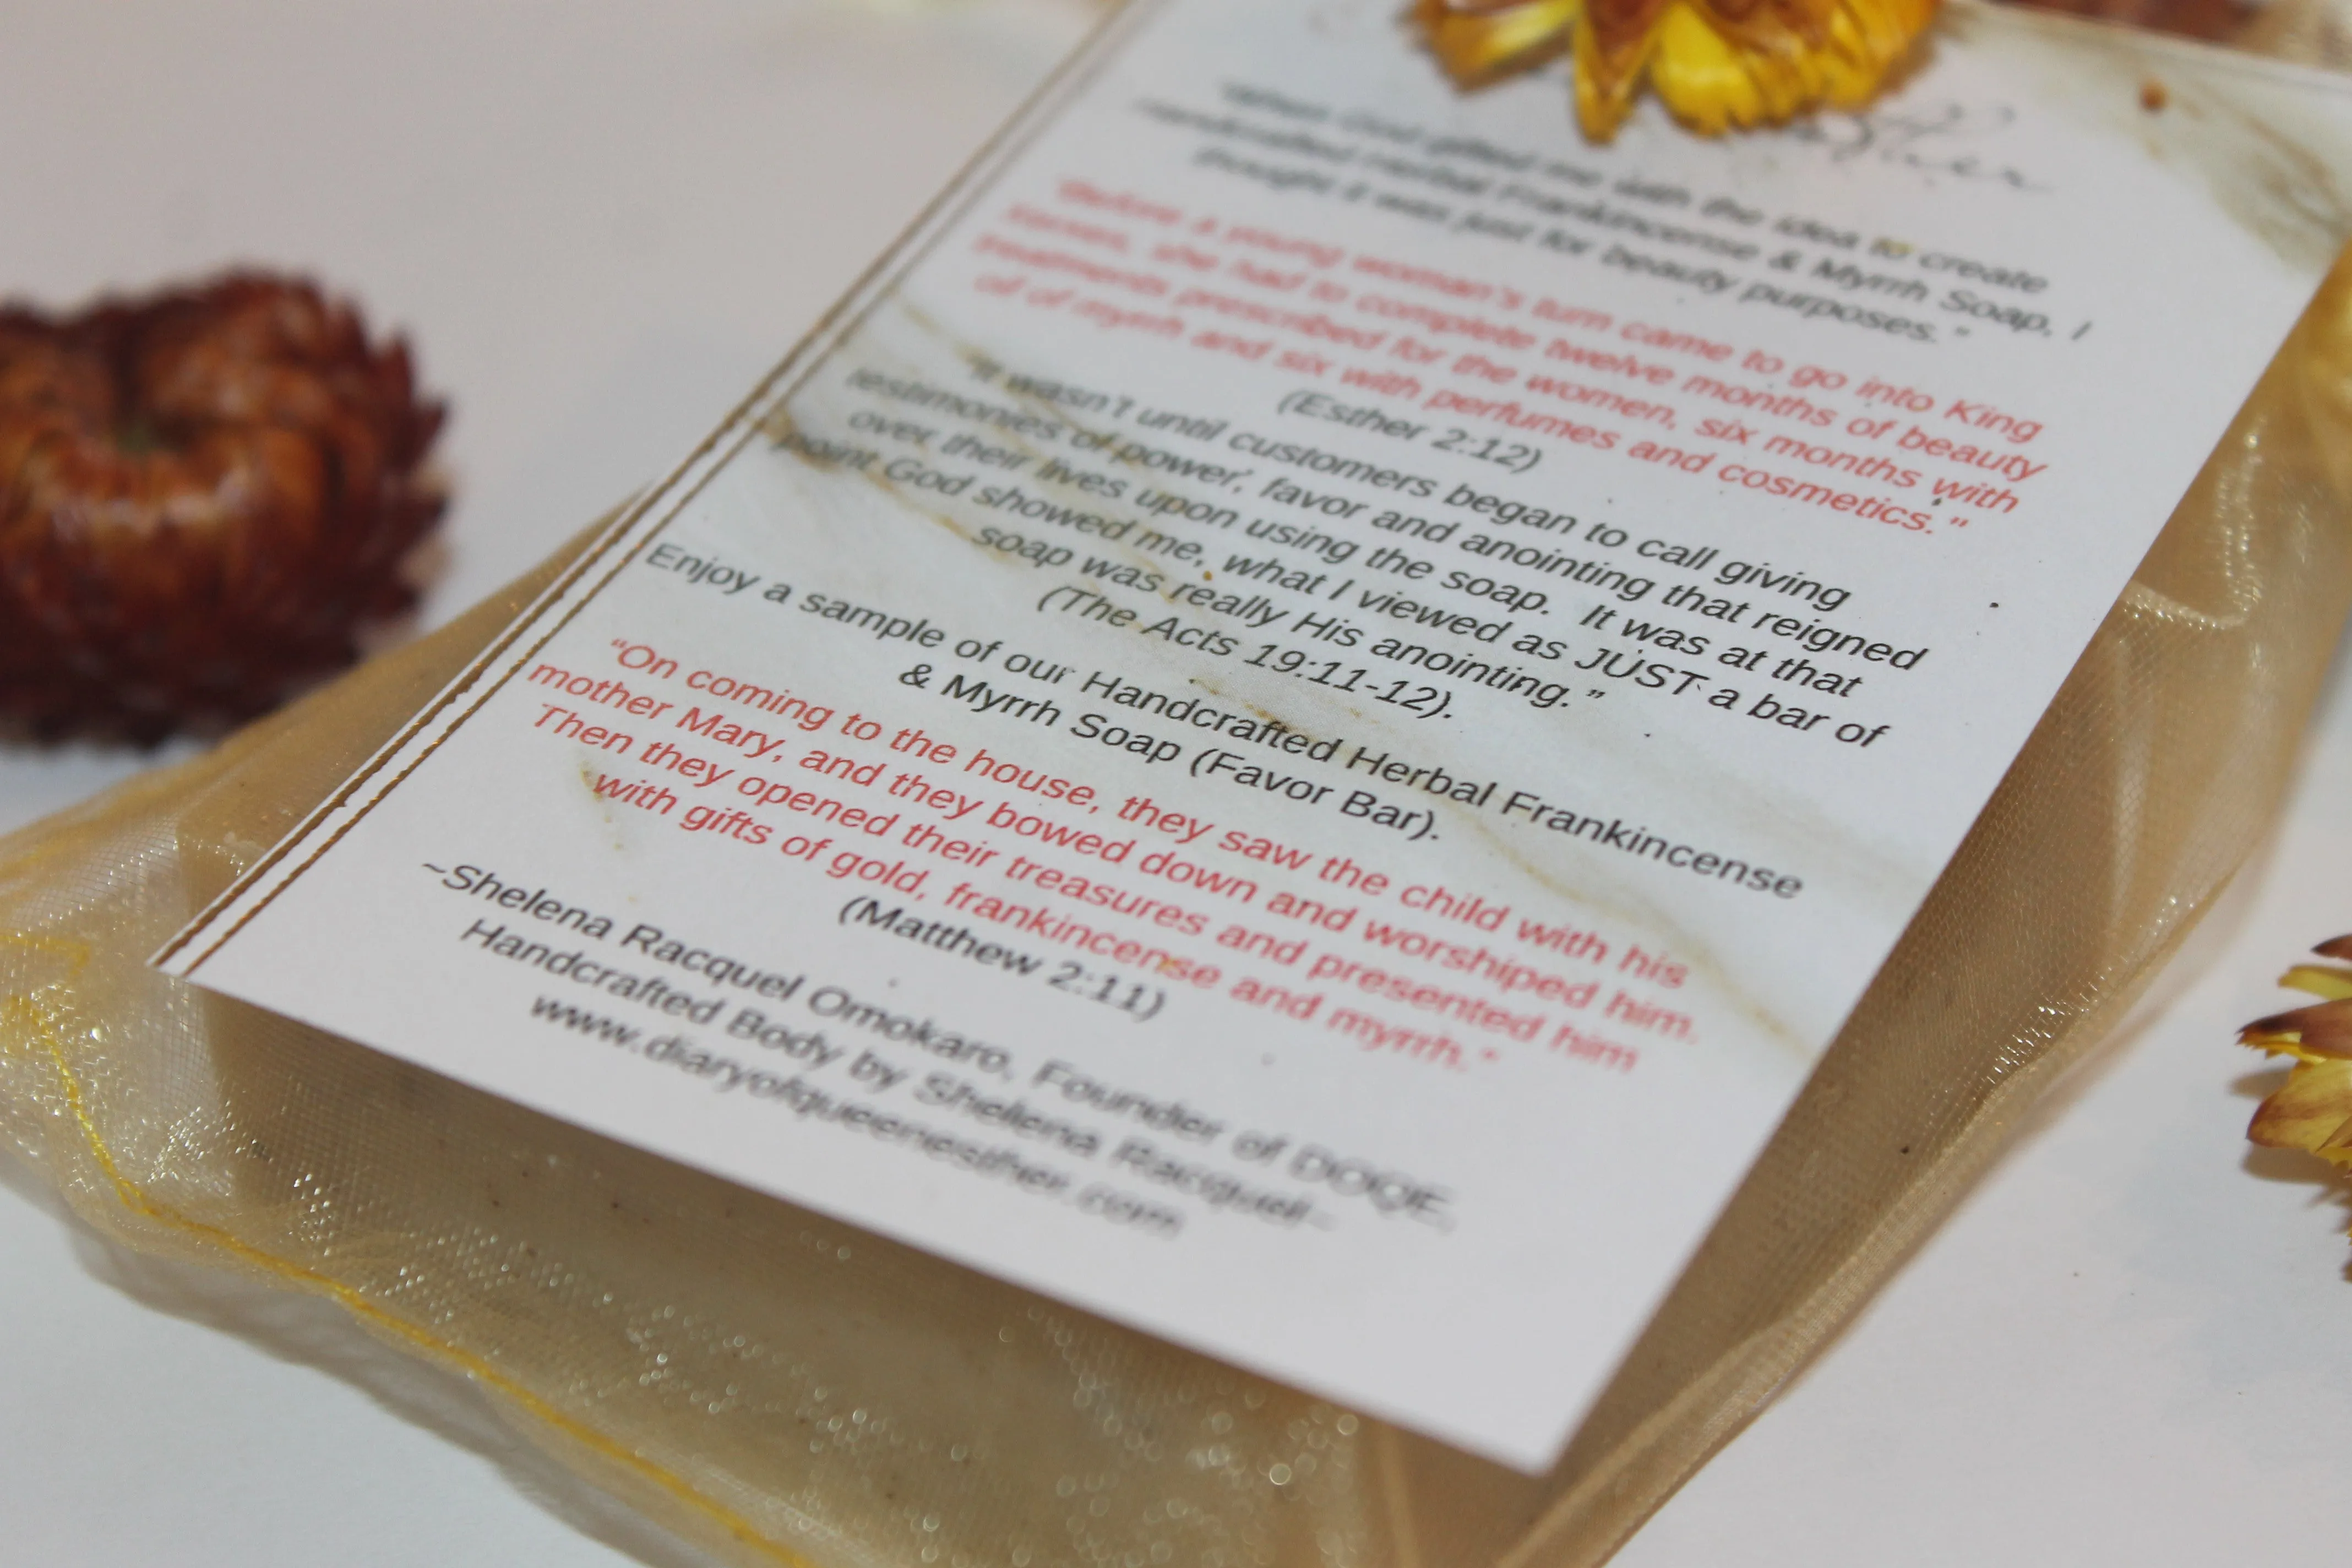 "When God gifted me with the idea to create
Handcrafted Herbal Frankincense & Myrrh Soap, I
thought it was just for beauty purposes."
"Before a young woman's turn came to go into King
Xerxes, she had to complete twelve months of beauty
treatments prescribed for the women, six months with
oil of myrrh and six with perfumes and cosmetics."
(Esther 2:12)
"It wasn't until customers began to call giving
testimonies of power, favor and anointing that reigned
over their lives upon using the soap. It was at that
point God showed me, what I viewed as JUST a bar of
soap was really His anointing."
(The Acts 19:11-12).
Enjoy a sample of our Handcrafted Herbal Frankincense
& Myrrh Soap (Favor Bar).
"On coming to the house, they saw the child with his
mother Mary, and they bowed down and worshiped him.
Then they opened their treasures and presented him
with gifts of gold, frankincense and myrrh."
(Matthew 2:11)
~Shelena Racquel Omokaro, Founder of DOQE,
Handcrafted Body by Shelena Racquel~
www.diaryofqueenesther.com